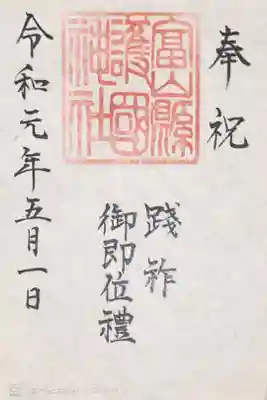 奉祝
富山縣
護國
神社
踐祚
御即位禮
令和元年五月一日